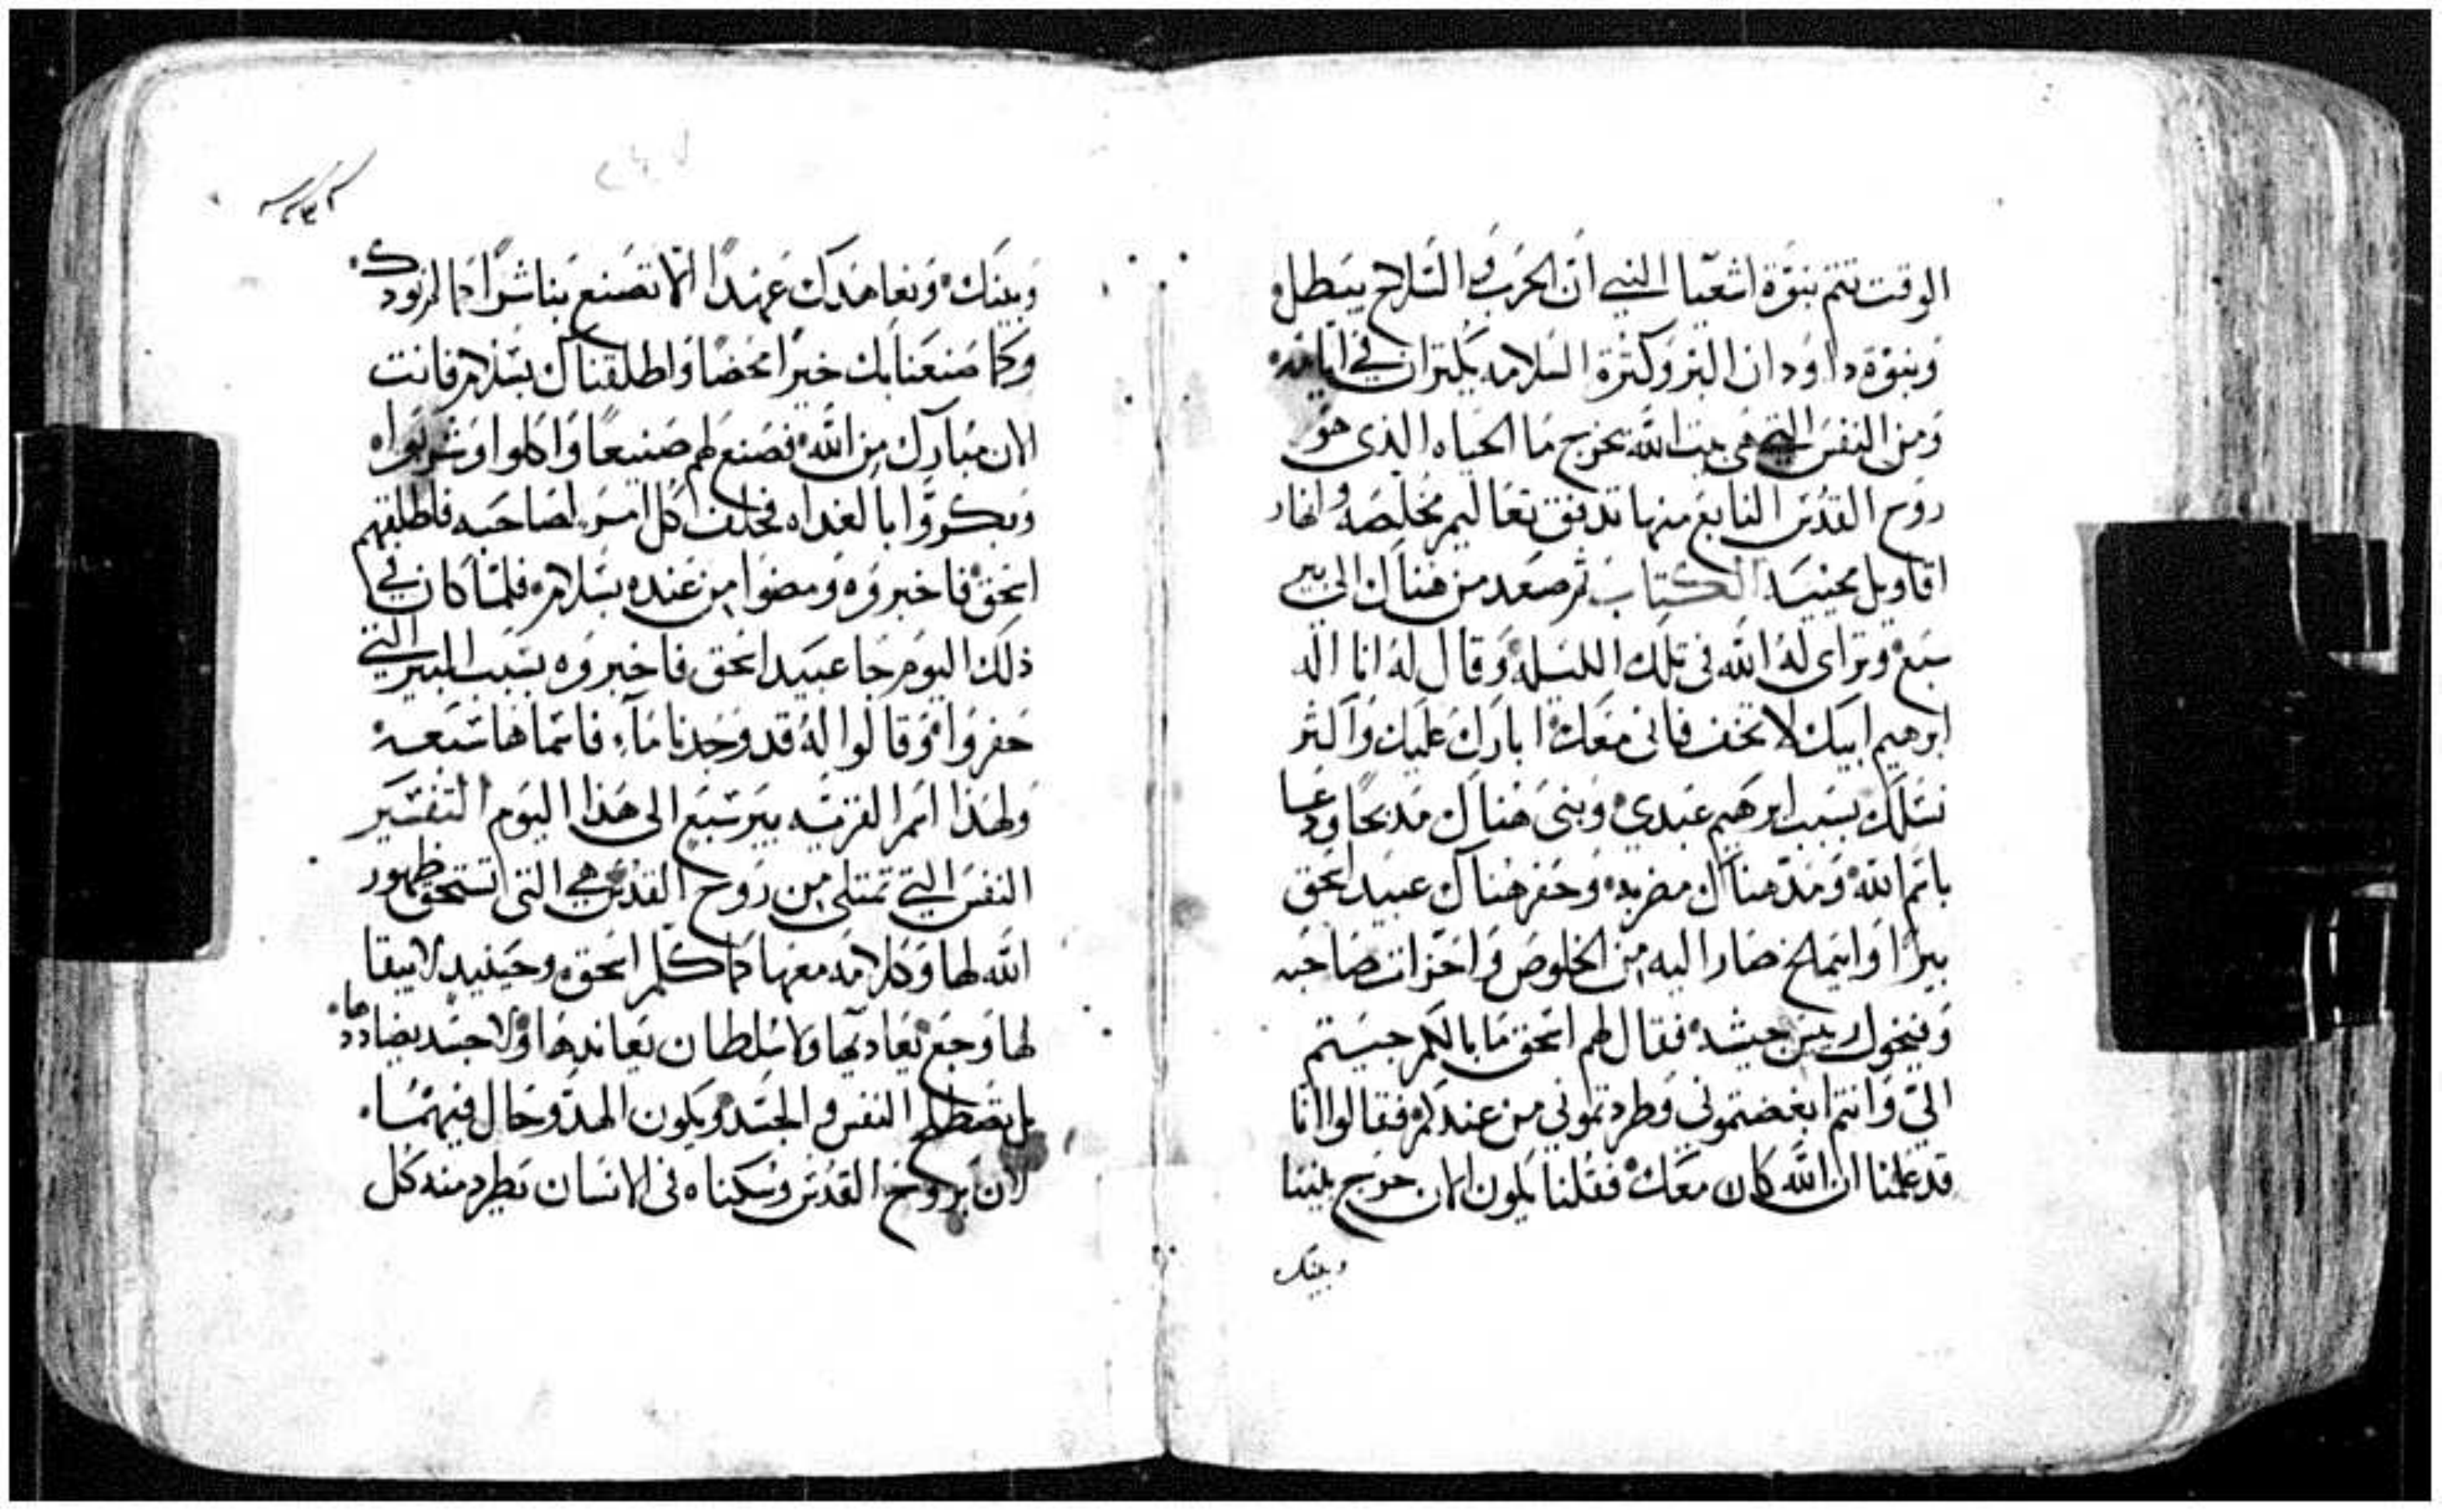 الوقت تتم نبوّة اشعيا النبي ان الحرب والسلاح يبطل
ونبوّة داود ان البر وكثرة السلامه يكثران في ايامه
ومن النفس التي هي بيت الله تخرج ما الحياه الذي هو
روح القدس النابع منها تدفق تعاليم مخلصه وانهار
اقاويل محييه الكتاب ثم صعد من هناك الى بير
سبع وتراى له الله فى تلك الليله وقال له انا اله
ابرهيم ابيك لا تخف فانى معك ابارك عليك واكثر
نسلك بسبب ابرهيم عبدي وبنى هناك مدبحا ودعا
باسم الله ومد هناك مضربه وحفر هناك عبيد اسحق
بيرا وابيمالخ صار اليه من الخلوص واحزات صاحبه
وفيخول ريس جيشه فقال لهم اسحق ما بالكم جيتم
اليّ وانتم ابغضتموني وطردتموني من عندكم فقالوا انا
قد علمنا ان الله كان معك فقلنا يكون الان حرج بيننا
وبينك
وبينك ونعاهدك عهدا الا تصنع بنا شرا كما لم نودك
وكما صنعنا بك خيرا محضا واطلقناك بسلام فانت
الان مبارك من الله فصنع لهم صنيعا واكلوا وشربوا
وبكروا بالغداه فحلف كل امر لصاحبه فاطلقهم
اسحق فاخبروه ومضوا من عنده بسلام فلما كان في
ذلك اليوم جا عبيد اسحق فاخبروه بسبب البير التي
حفروا وقالوا له قد وجدنا ماء فاسماها سبعه
ولهذا اسم القريه بير سبع الى هذا اليوم التفسير
النفس التي تمتلى من روح القدس هي التى تستحق ظهور
الله لها وكلامه معها كما كلم اسحق وحينيد لا يبقا
لها وجع يعاديها ولا سلطان يعاندها ولا جسد يضاددها
بل يصطلح النفس والجسد ويكون الهدو حال فيهما
لان بروح القدس وسكناه فى الانسان تطرد منه كل